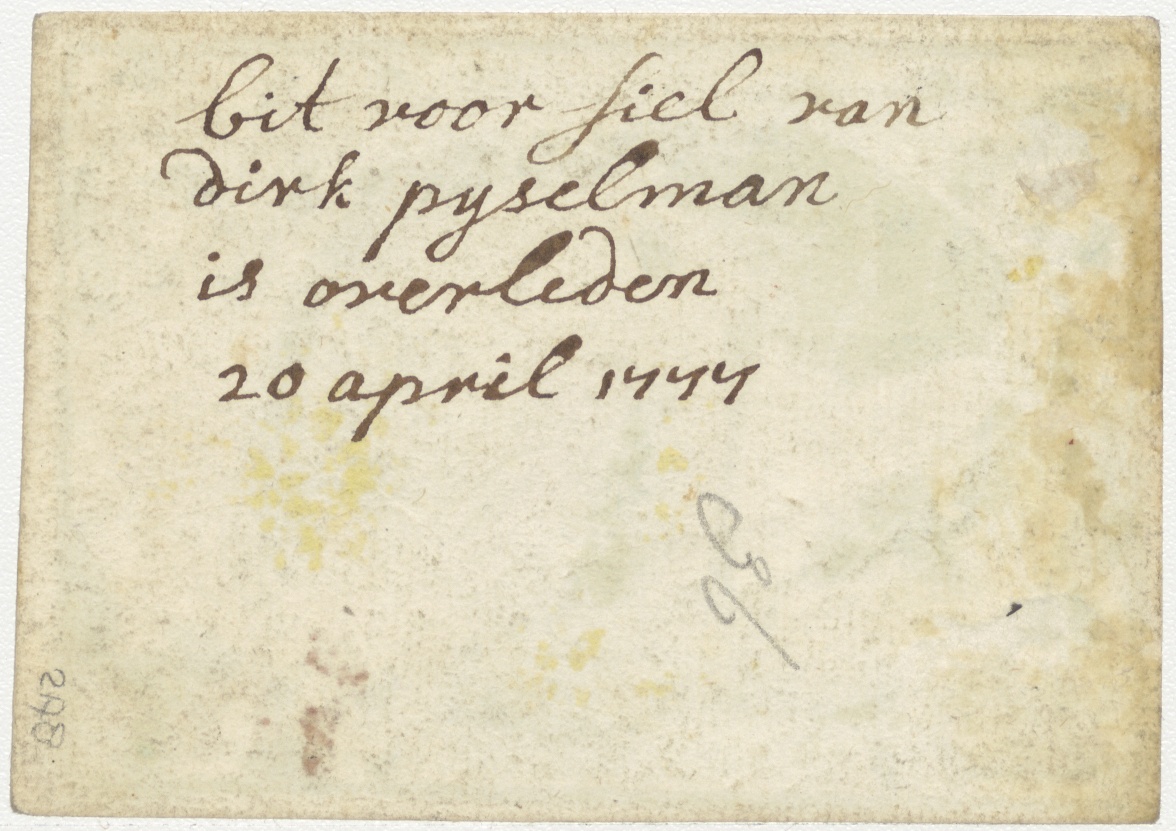 bit voor siel van
dirk pyselman
is overleden
20 april 1777